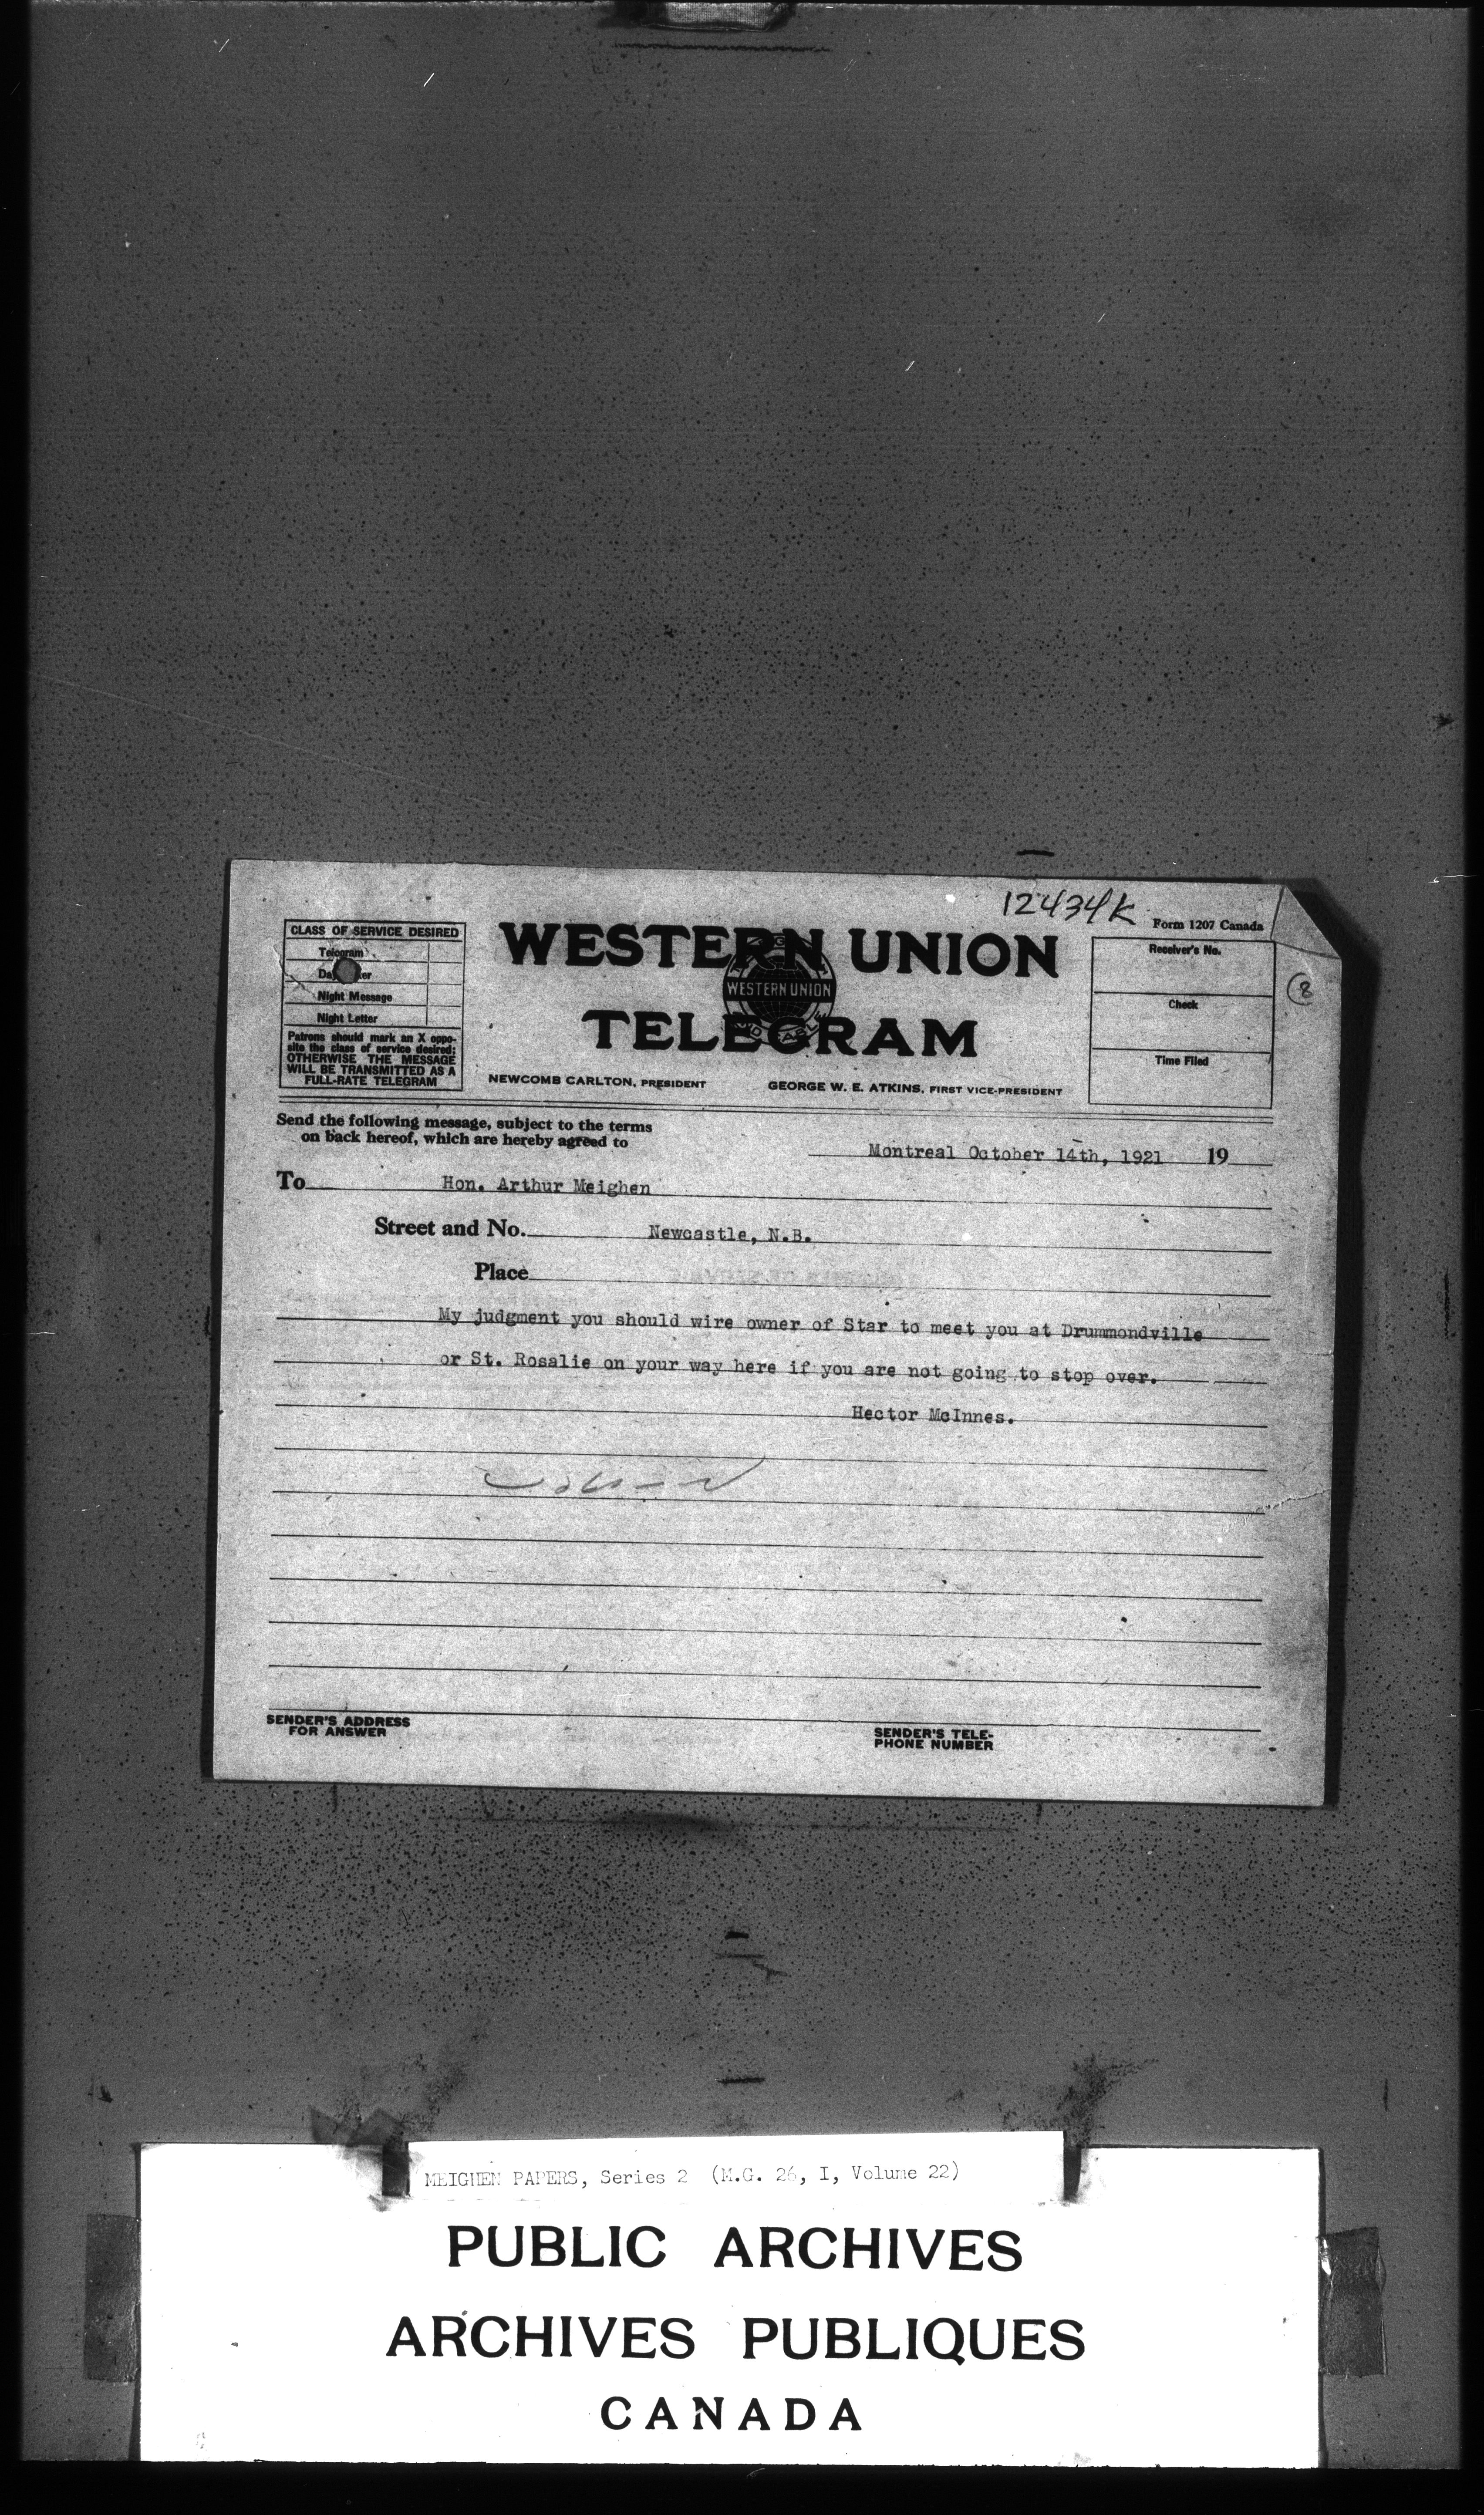 12434K
Form 1207 Canada
CLASS OF SERVICE DESIRED
Telegram
Night Message
Night Letter
Patrons should mark an X oppo-
site the class of service desired:
OTHERWISE THE MESSAGE
WILL BE TRANSMITTED AS A
FULL-RATE TELEGRAM
WESTERN UNION
WESTERN UNION
TELEGRAM
NEWCOMB CARLTON, PRESIDENT GEORGE W. E. ATKINS, FIRST VICE-PRESIDENT
Receiver's No.
Check
Time Filed
8
Send the following message, subject to the terms
on back hereof, which are hereby agreed to
Montreal October 14th, 1921 19
To Hon. Arthur Meighen
Street and No. Newcastle, N.B.
Place
My judgment you should wire owner of Star to meet you at Drummondville
or St. Rosalie on your way here if you are not going to stop over.
Hector McInnes.
SENDER'S ADDRESS
FOR ANSWER
SENDER'S TELE-
PHONE NUMBER
MEIGHEN PAPERS, Series 2 (M.G. 26, I, Volume 22)
PUBLIC ARCHIVES
ARCHIVES PUBLIQUES
CANADA